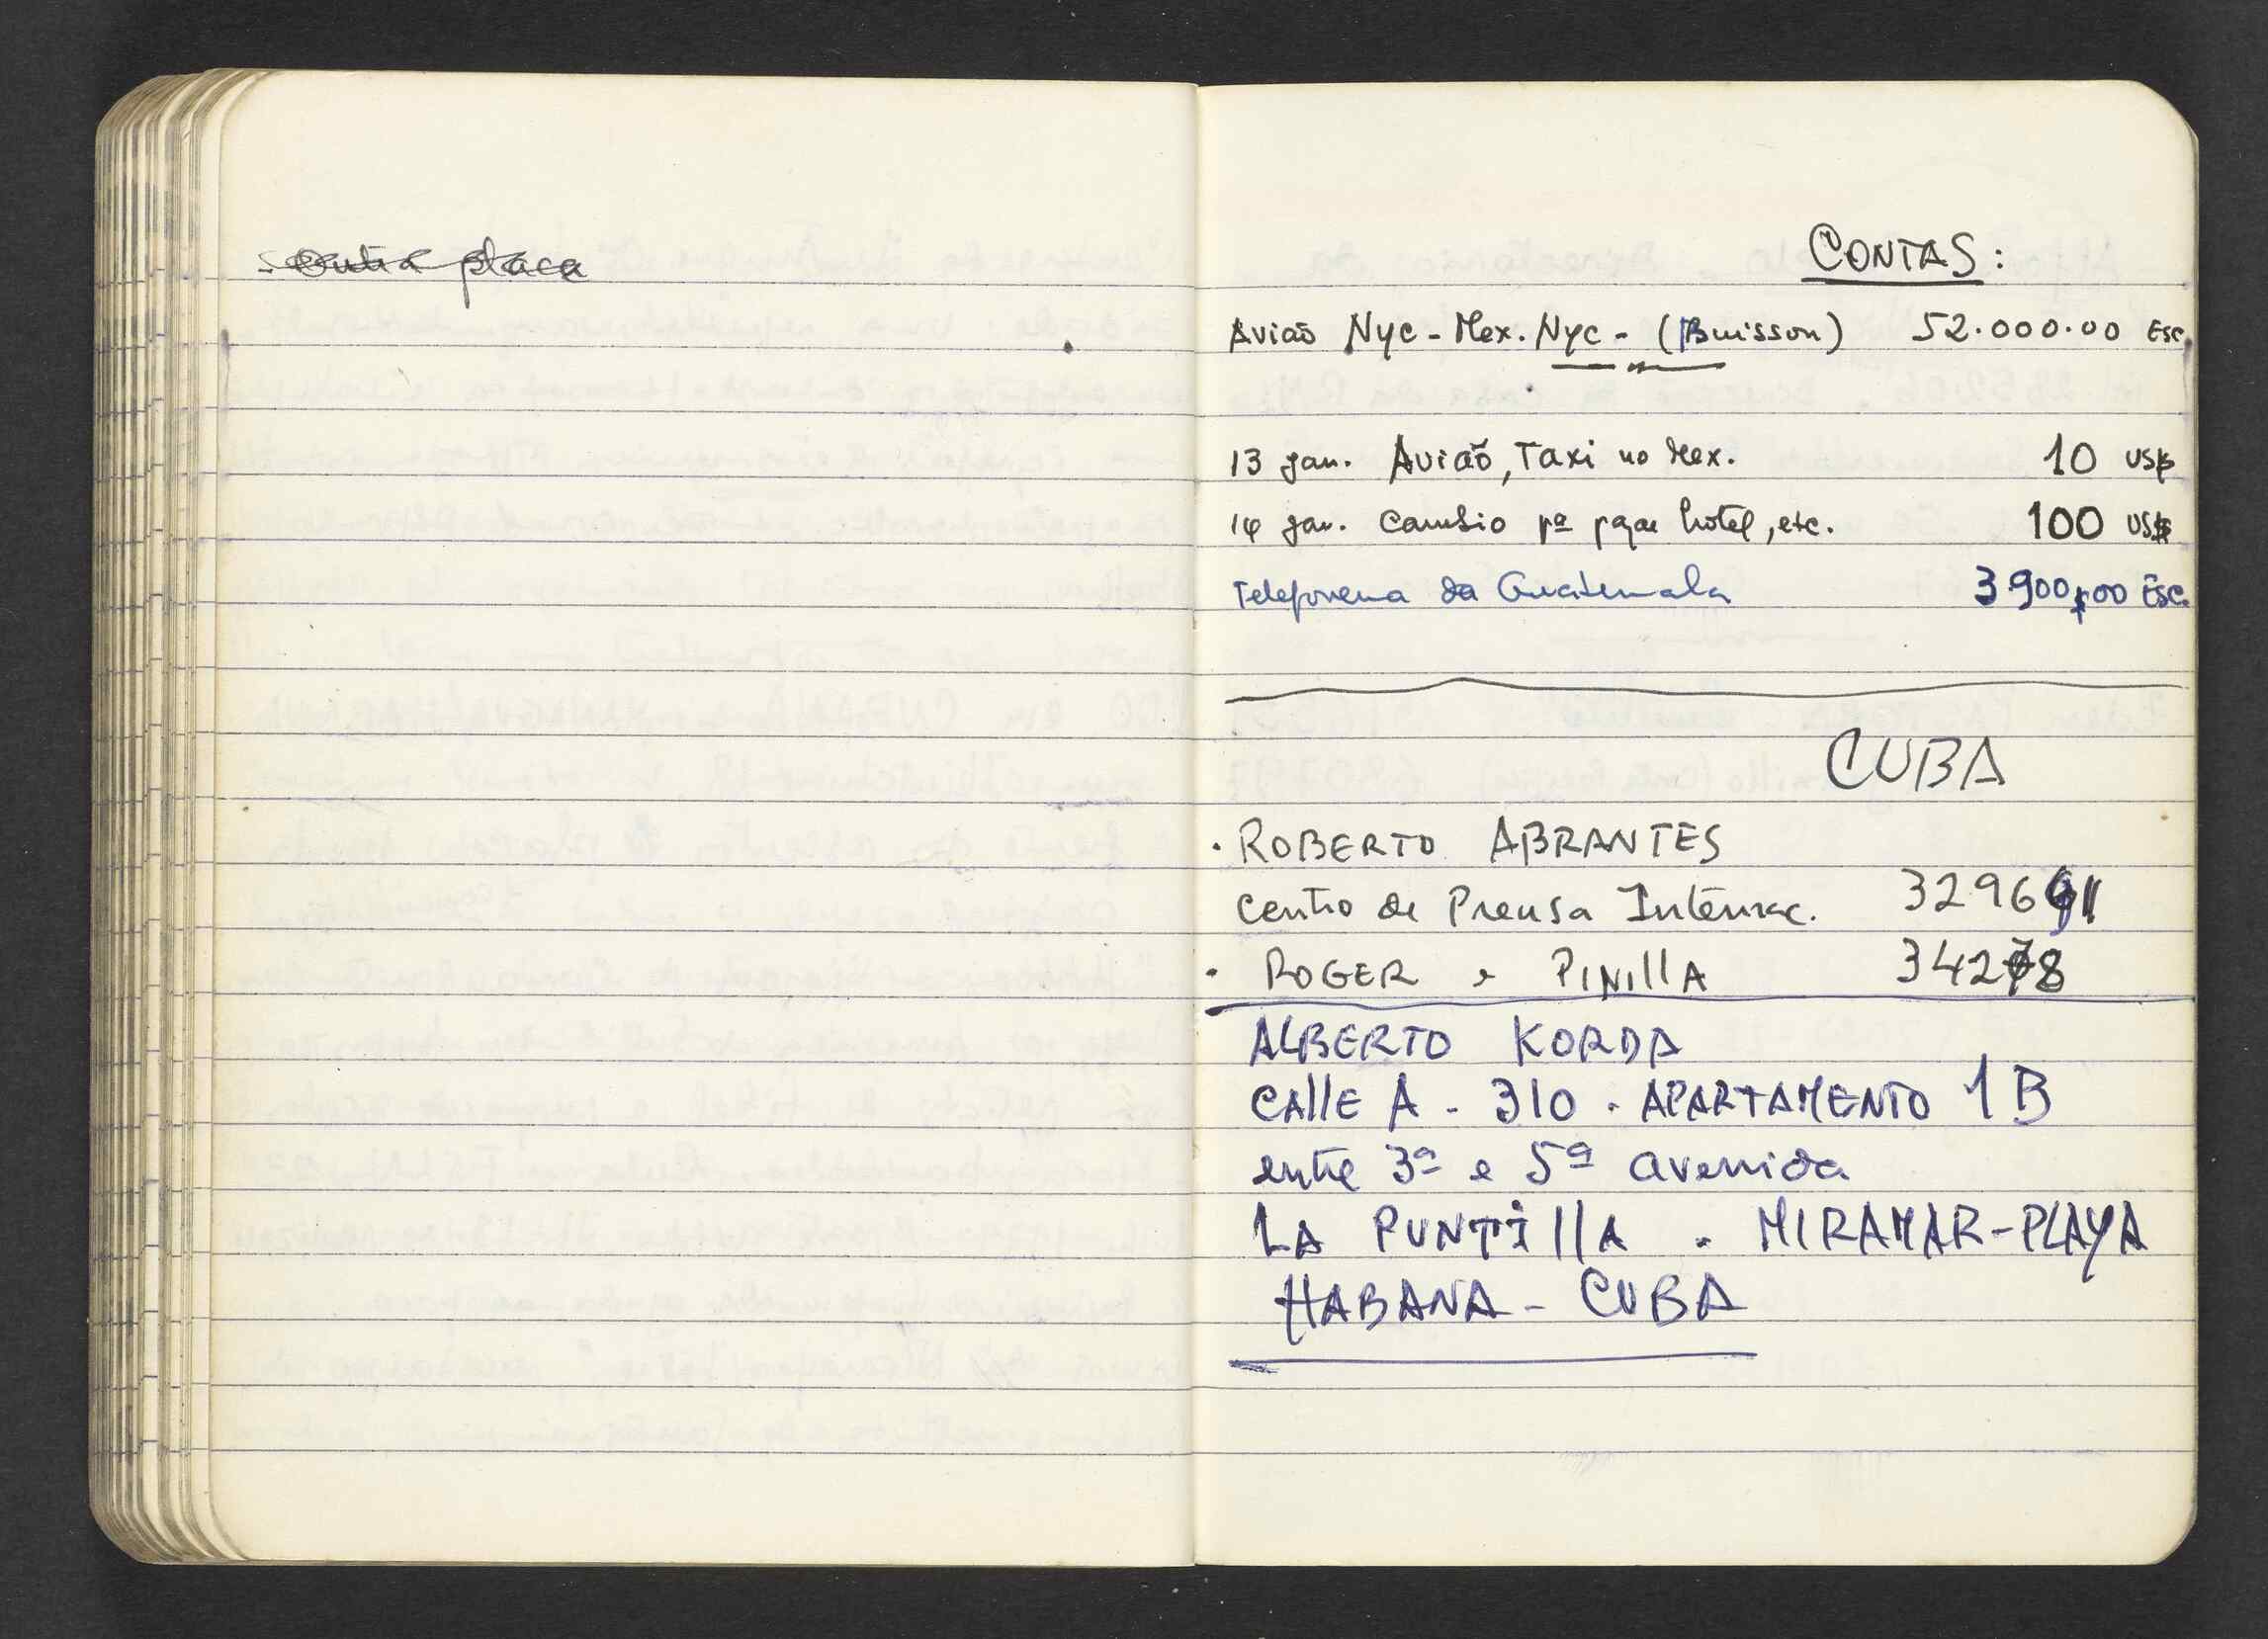 outra placa
CONTAS:
Avião Nyc - Mex. Nyc - (Buisson) 52.000.00 Esc.
13 jan. Avião, Taxi no Mex. 10 US$
14 jan. Cambio pª pagar hotel, etc. 100 US$
Telefonema da Guatemala 3900$00 Esc.
CUBA
· ROBERTO ABRANTES
Centro de Prensa Internac. 3296
· ROGER e PINIllA 34278
ALBERTO KORDA
CAllE A - 310 . APARTAMENTO 1B
entre 3ª e 5ª avenida
LA PUNTIllA . MIRAMAR-PLAYA
HABANA - CUBA